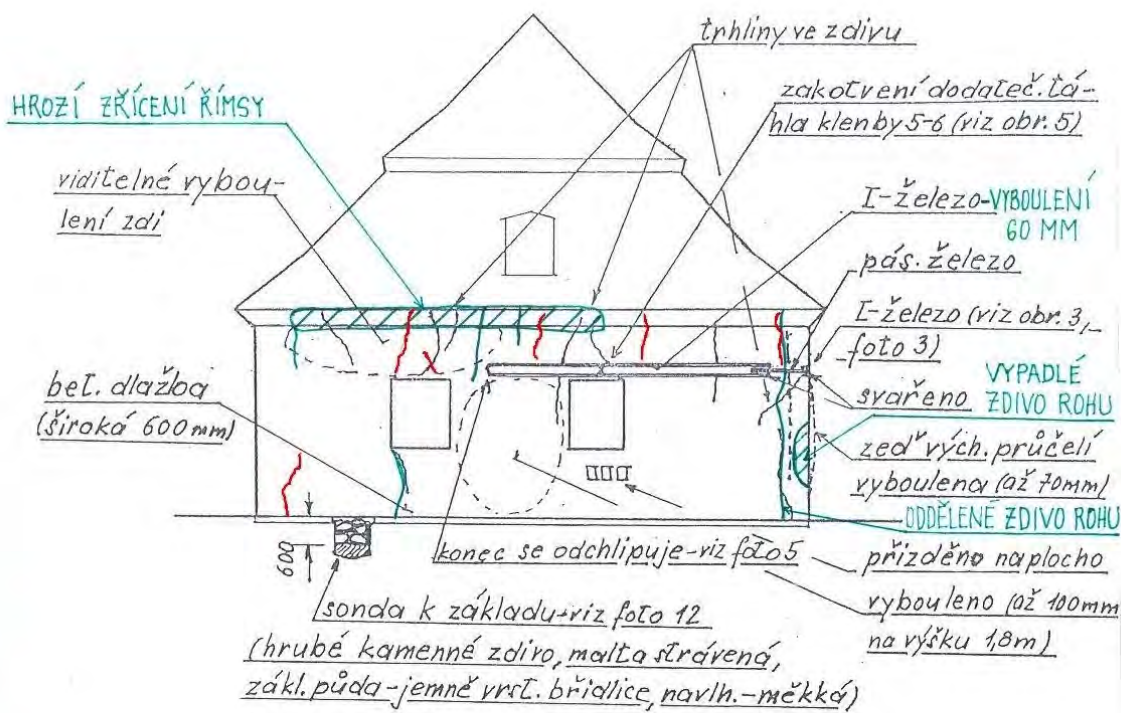 trhliny ve zdivu
HROZÍ ZŘÍCENÍ ŘÍMSY
zakotvení dodateč. tá-
hla klenby 5-6 (viz obr. 5)
viditelné vybou-
lení zdi
I-železo-VYBOULENÍ
60 MM
pás. železo
I-železo (viz obr. 3,
foto 3)
bet. dlažba
(široká 600 mm)
svařeno
VYPADLÉ
ZDIVO ROHU
zeď vých. průčelí
vyboulena (až 70mm)
ODDĚLENÉ ZDIVO ROHU
600
konec se odchlipuje-viz foto 5
přizděno naplocho
vybouleno (až 100mm
na výšku 1,8m)
sonda k základu-viz foto 12
(hrubé kamenné zdivo, malta strávená,
zákl. půda-jemně vrst. břidlice, navlh.-měkká)